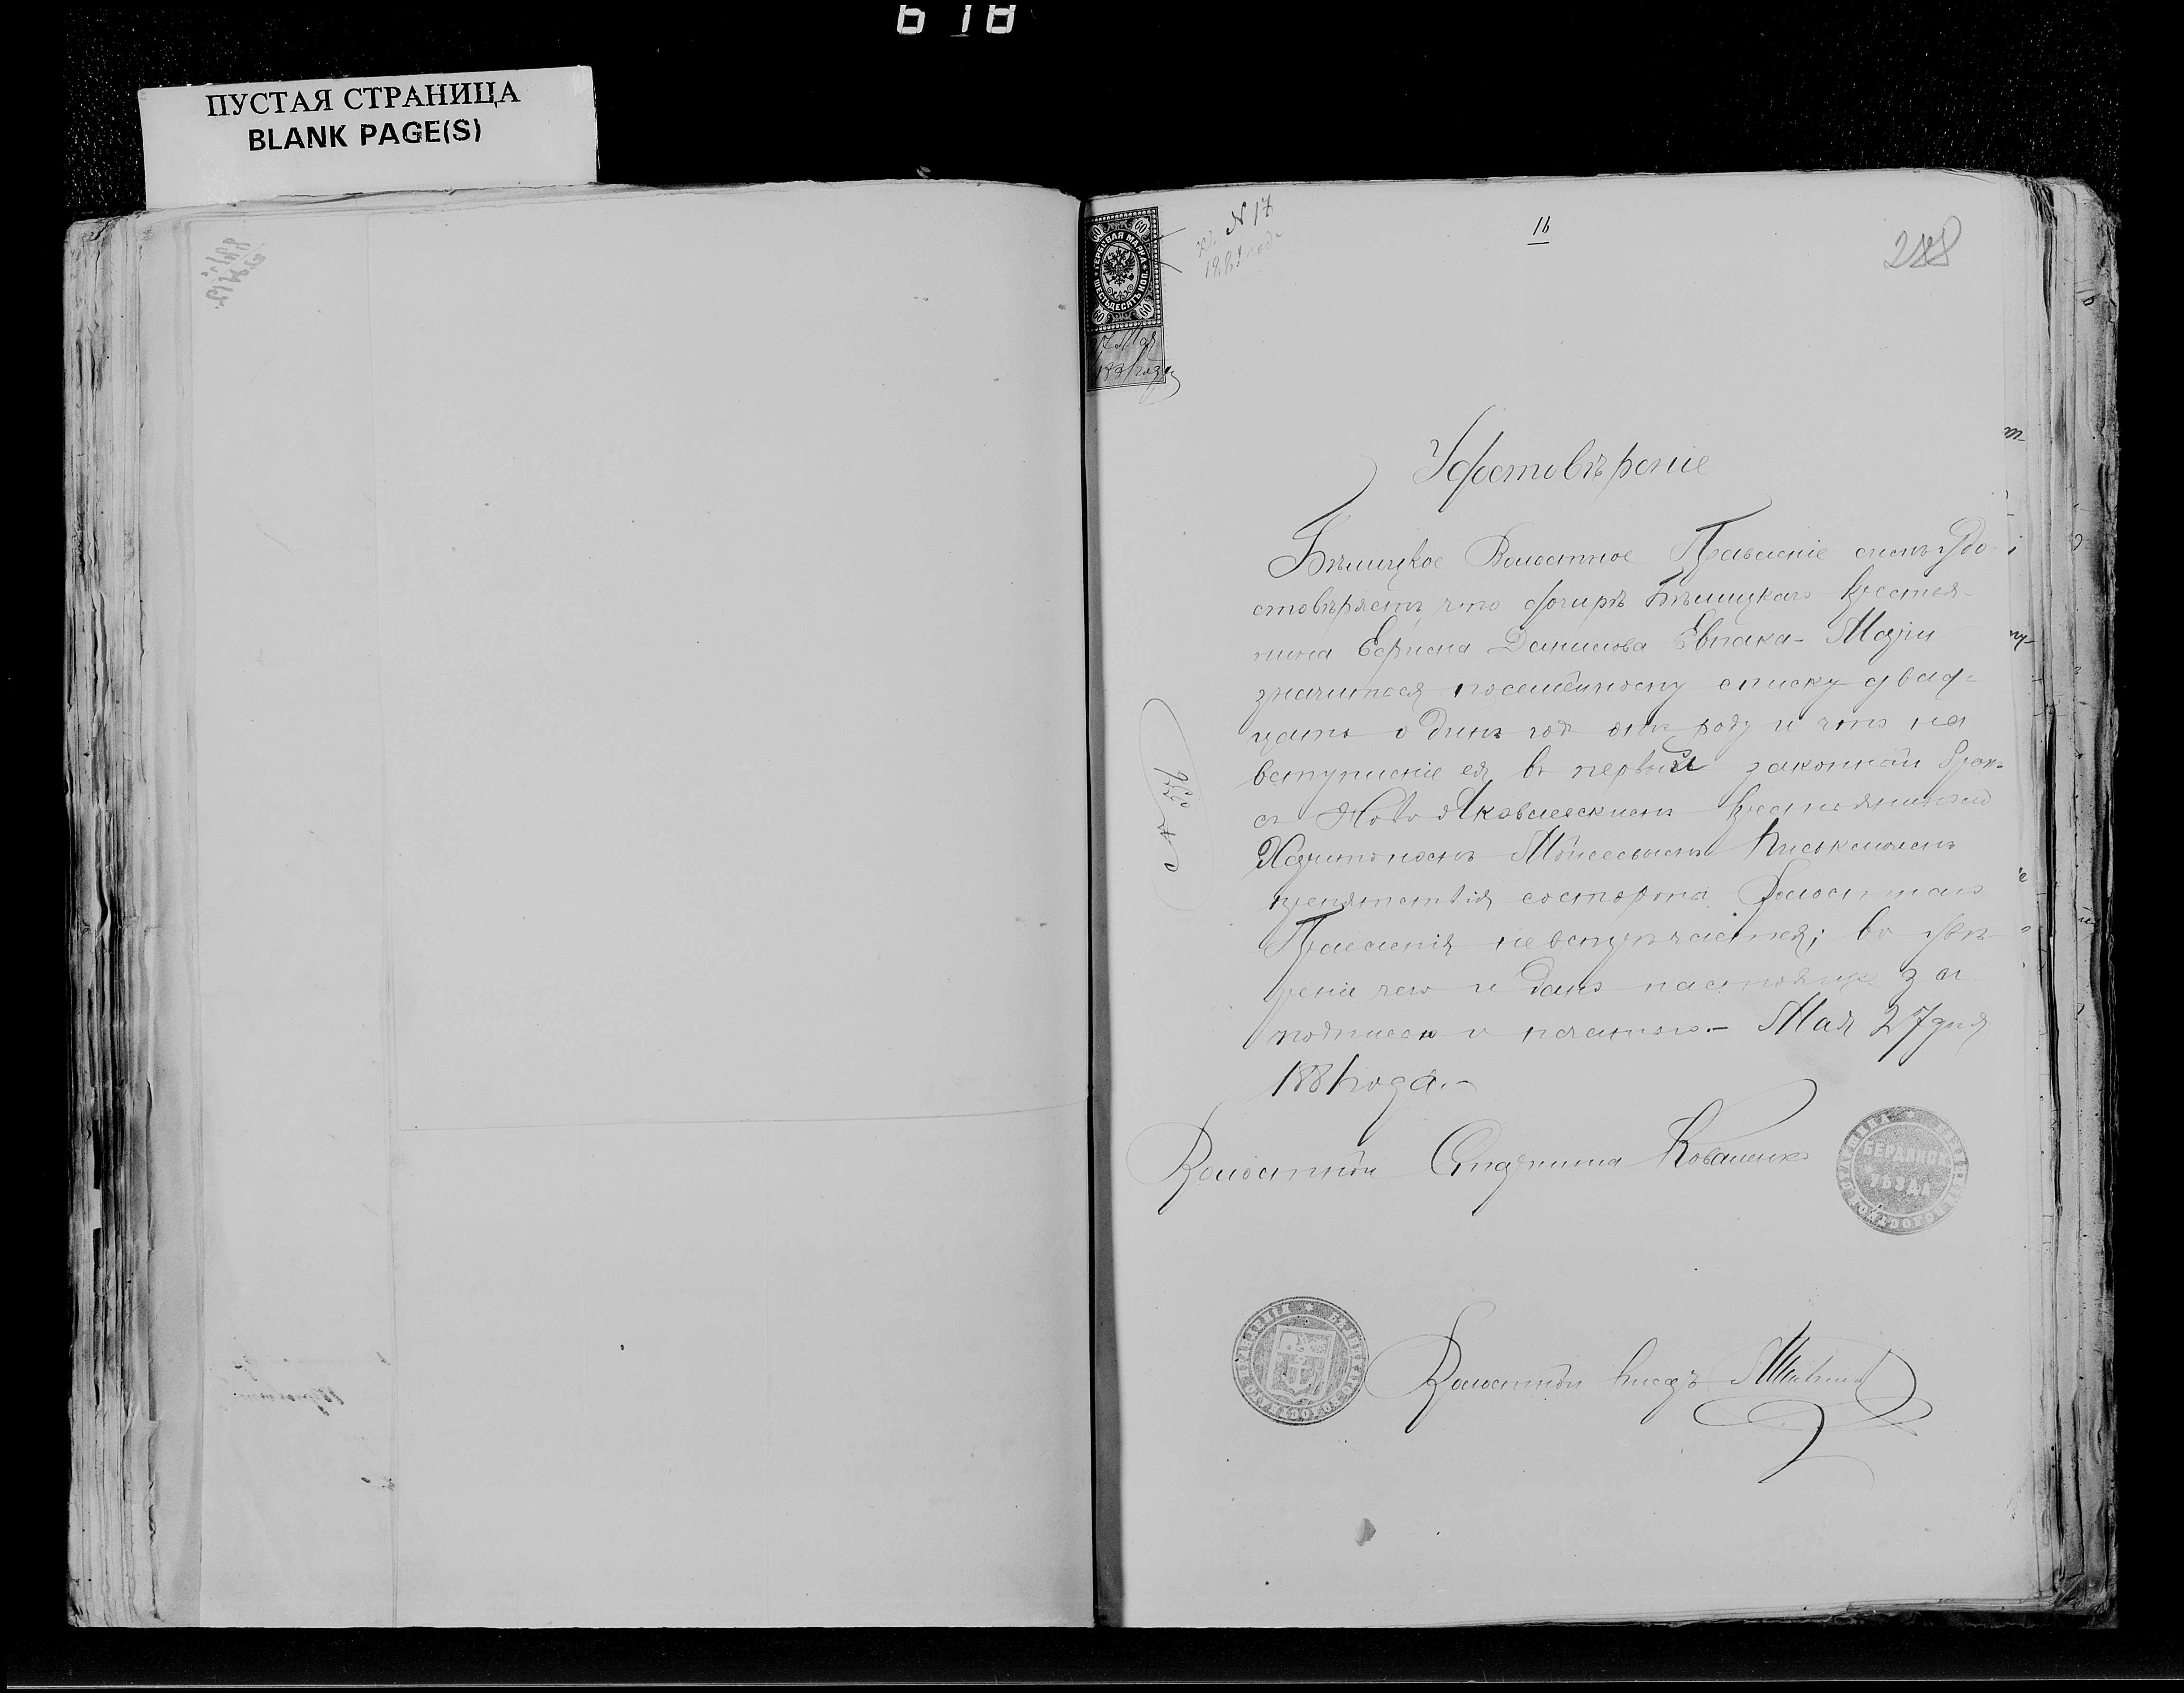 618
ПУСТАЯ СТРАНИЦА
BLANK PAGE(S)
N 17
16
288
60 60
ГЕРБОВАЯ МАРКА
ШЕСТЬДЕСЯТЪ КОП.
60 60
27 Мая
1881 года
Удостовѣреніе
Бѣлицкое Волостное Правленіе симъ удо-
стовѣряетъ, что дочирѣ Бѣлицкаго крестья-
нина Данилова Евпака - Маріи
значится посемейному списку двад-
цать одинъ годъ отъ роду и что на
вступленіе ея въ первый законный брак=
съ Ново Яковлевскимъ крестьяниномъ
Харитономъ Моисеевымъ
препятствія состороны Волостнаго
Правленія невстречается; во увѣ-
реніе чего и дано настояще за
подписью и печатью. - Мая 27 дня
1881 года. -
Волостной Старшина Коваленко
БЕРДЯНСК
УѢЗДА
Волостной Писарь